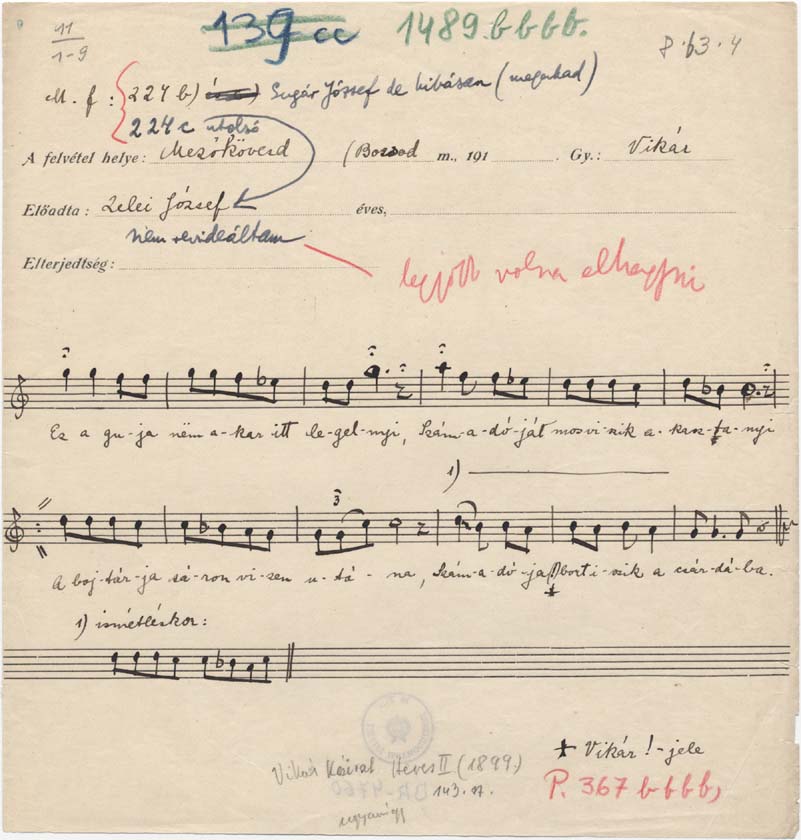 11 139 cc 1489. b b b b.
1-9 8.63.4
M. f : 224 b) Sugár József de hibásan (megakad)
224 c utolsó
A felvétel helye: Mezőkövesd (Borsod m., 191 . Gy.: Vikár
Előadta: Zelei József éves,
nem revideáltam
Elterjedtség:
legjobb volna elhagyni
Ez a gu-ja nëm a-kar itt le-gel-nyi, Szám-a-dó-ját mosvi-szik a-kasz-ta-nyi
1)
3
A boj-tár-ja sá-ron vi-zen u-tá-na, Szám-a-dó-ja bort i-szik a csár-dá-ba.
1) ismétléskor:
Vikár ! - jele
Vikár Heves II (1899.)
P. 367 b b b b,
143. sz.
ugyanígy